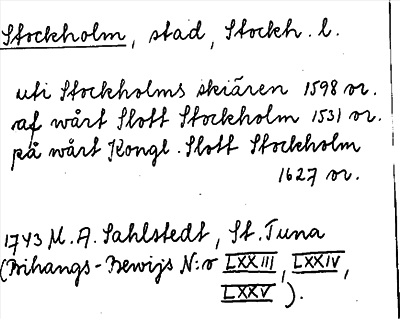 Stockholm, stad, Stockh. l.
uti Stockholms skiären 1598 or.
af wårt Slott Stockholm 1531 or.
på wårt Kongl. Slott Stockholm
1627 or.
1743 M. A. Sahlstedt, St. Tuna
(Bihangs-Bewijs N:o LXXIII, LXXIV,
LXXV).